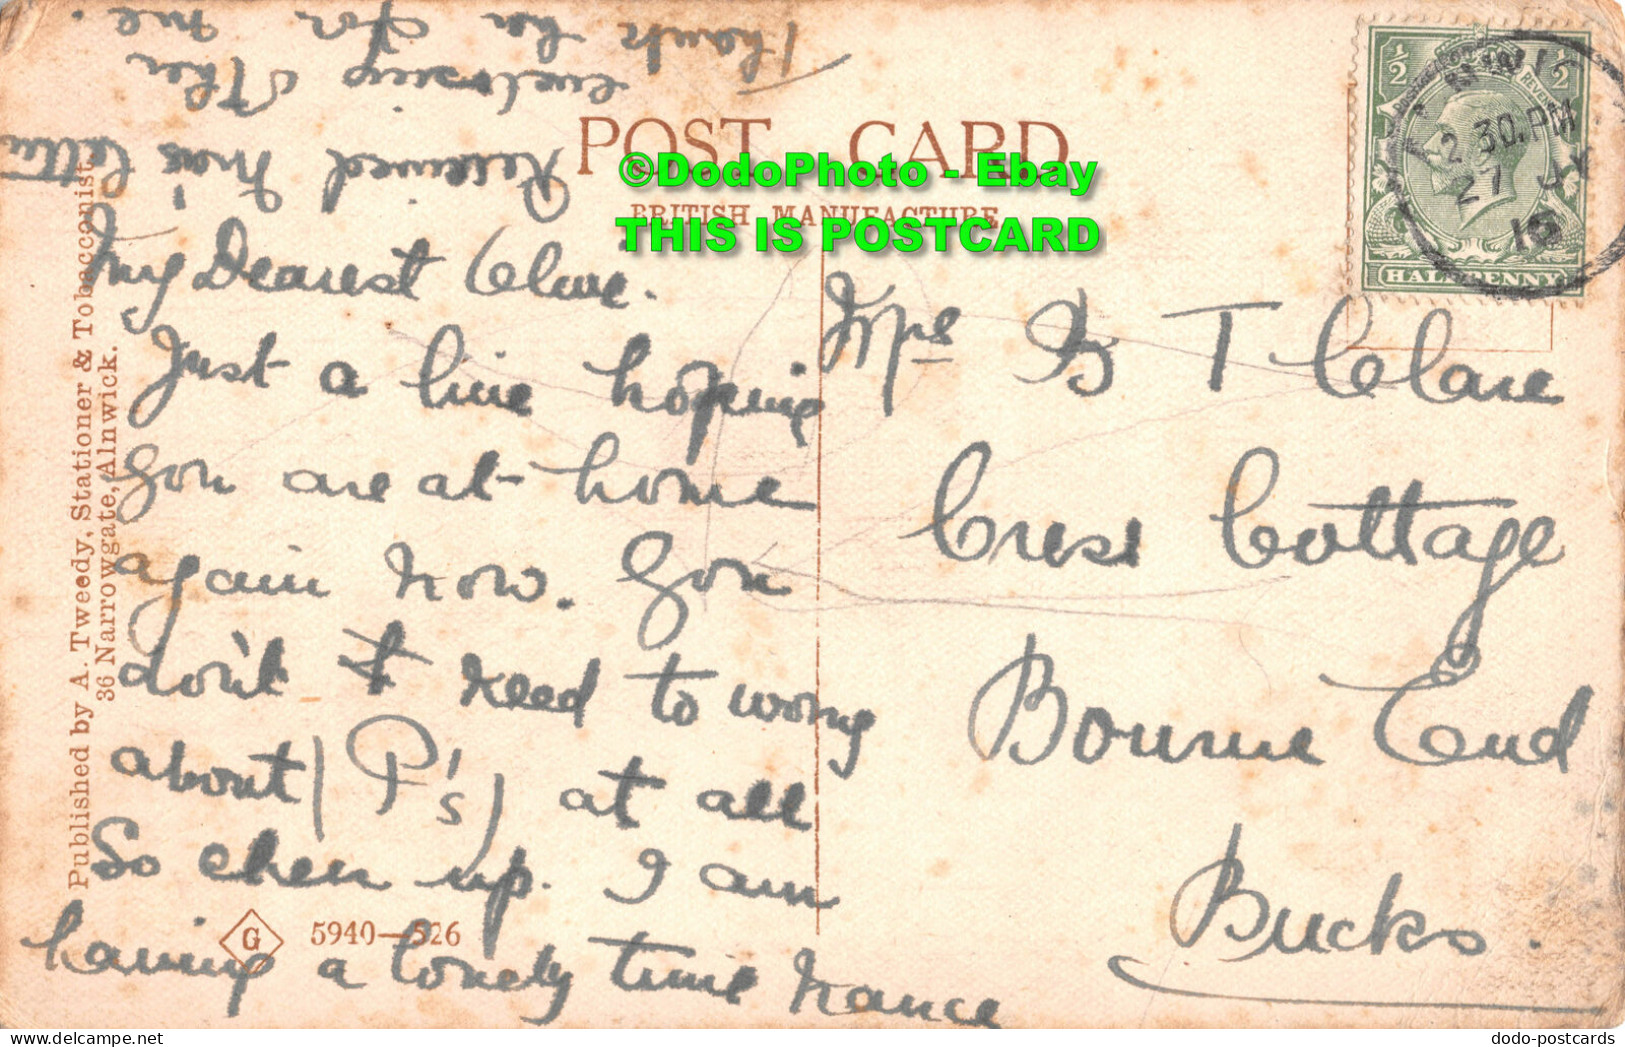 POST CARD
BRITISH MANUFACTURE
©DodoPhoto - Ebay
THIS IS POSTCARD
½ ½
REVENUE
HALFPENNY
2 30.PM
27 JY
Published by A. Tweedy, Stationer & Tobacconist,
36 Narrowgate, Alnwick.
G 5940—526
My Dearest Clare.
Just a line hoping
you are at home
again now. You
don't need to worry
about (P's) at all
So cheer up. I am
having a lonely time
Received letter
enclosing other
Thank her for me.
Mrs B T Clare
Cress Cottage
Bourne End
Bucks.
dodo-postcards